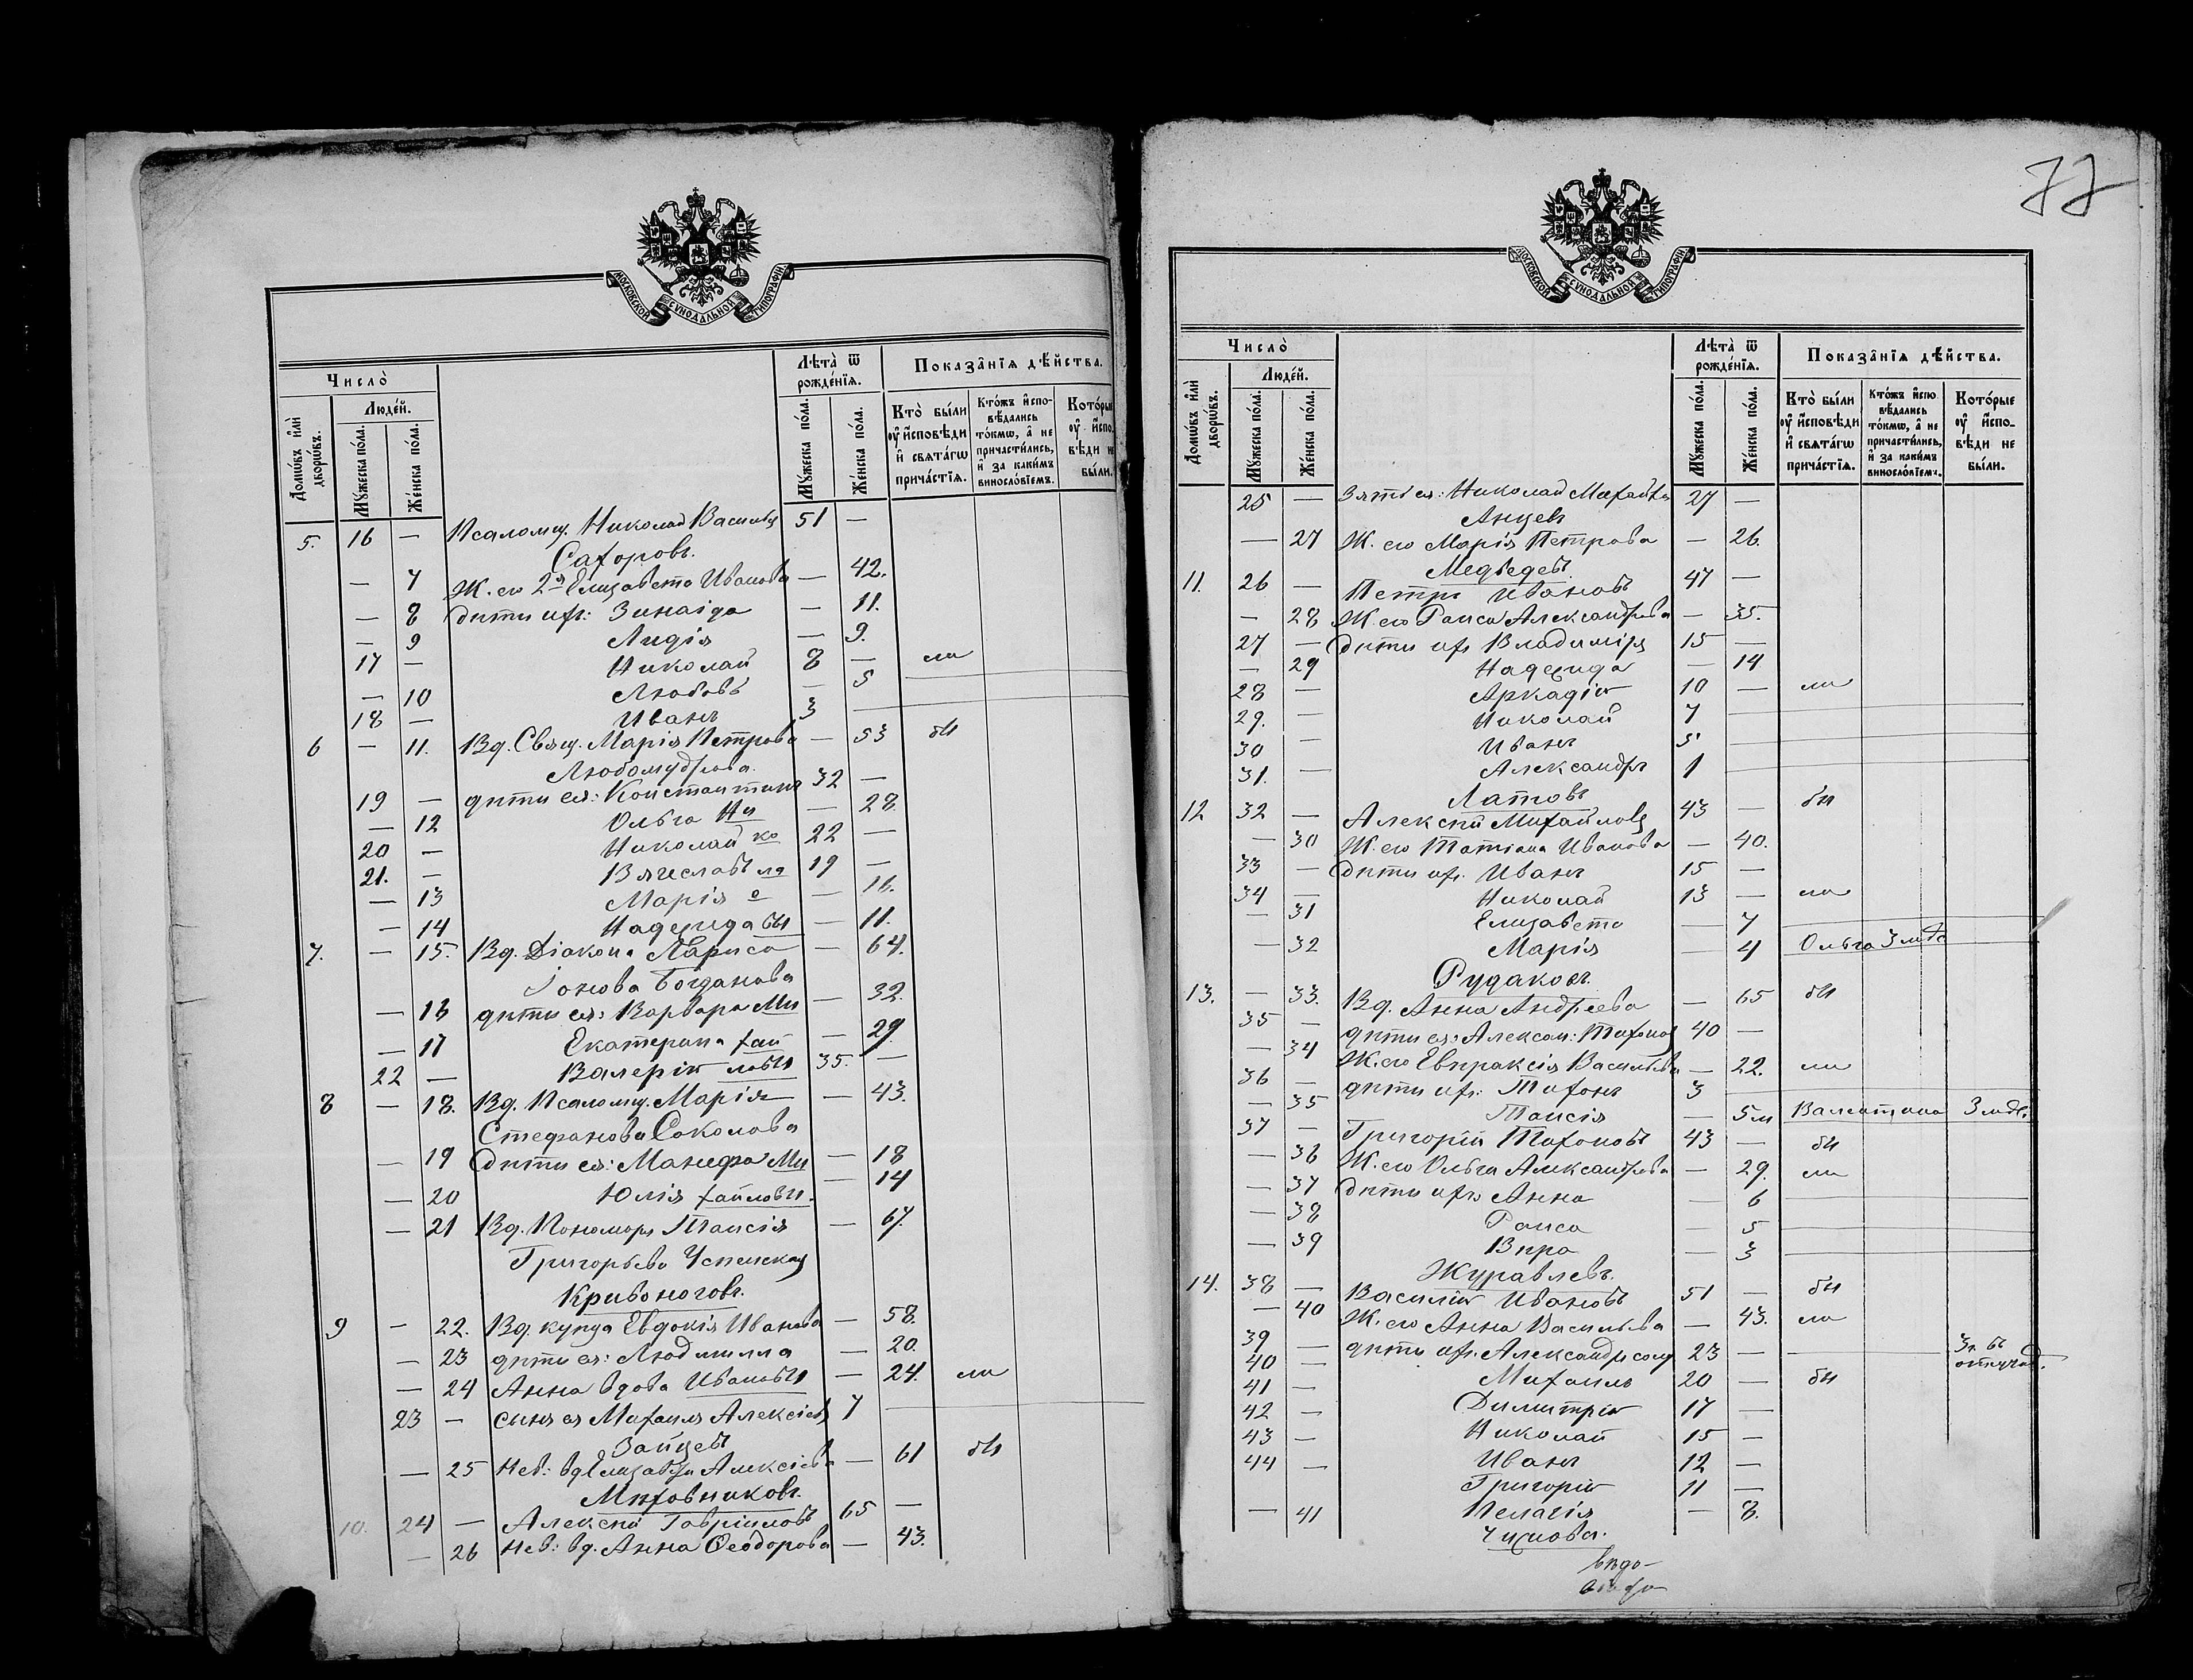 77
МОСКОВСКОЙ СУНОДАЛЬНОЙ ТИПОГРАФІИ
Число̀
Люде́й.
Домѡ́въ и҆лѝ дворѡ́въ.
Мꙋ́жеска по́ла.
Же́нска по́ла.
Лѣта̀ ѿ рожде́нїѧ.
Мꙋ́жеска по́ла.
Же́нска по́ла.
Показа̑нїѧ дѣ́йства.
Кто̀ бы́ли ᲂу҆ и҆́сповѣди и҆ свѧта́гѡ прича́стїѧ.
Кто́жъ и҆сповѣ́дались то́кмѡ, а҆ не причасти́лись, и҆ за каки́мъ винослові́емъ.
Кото́рые ᲂу҆ и҆́сповѣди не бы́ли.
5. 16 — Псаломщ. Николай Васильевъ 51 —
Сахоровъ.
— 7 Ж. его 2я Елизавета Иванова — 42.
— 8 Дѣти ихъ: Зинаіда — 11.
— 9 Лидія — 9.
17 — Николай 8 — ли
— 10 Любовь — 5
18 — Иванъ 3
6 — 11. Вд. Свящ. Марія Петрова — 53 бы
Любомудрова.
19 — дѣти ея: Константинъ 32 —
— 12 Ольга Ни — 28.
20 — Николай ко 22 —
21. — Вячеславъ ла 19 —
— 13 Марія е — 16.
— 14 Надежда вы — 11.
7. — 15. Вд. Діакона Лариса — 64.
Іонова Богданова
— 16 дѣти ея: Варвара Ми — 32.
— 17 Екатерина хаи — 29.
22 — Валерій ловы 35. —
8 — 18. Вд. Псаломщ. Марія — 43.
Стефанова Соколова
— 19 Дѣти ея: Манефа Ми — 18
— 20 Юлія хайловы. — 14
— 21 Вд. Пономаря Таисія — 67.
Григорьева Успенская
Кривоноговъ.
9 — 22. Вд. купца Евдокія Иванова — 58.
— 23 дѣти ея: Людмилла — 20.
— 24 Анна вдова Ивановы — 24. ли
23 — сынъ ея Михаилъ Алексіевъ 7
Зайцевъ
— 25 Нев: вд Елизавета Алексіева — 61 бы
Мѣховниковъ.
10. 24 — Алексѣй Гавріиловъ 65 —
— 26 Нев: вд. Анна Ѳеодорова — 43.
МОСКОВСКОЙ СУНОДАЛЬНОЙ ТИПОГРАФІИ
Число̀
Люде́й.
Домѡ́въ и҆лѝ дворѡ́въ.
Мꙋ́жеска по́ла.
Же́нска по́ла.
Лѣта̀ ѿ рожде́нїѧ.
Мꙋ́жеска по́ла.
Же́нска по́ла.
Показа̑нїѧ дѣ́йства.
Кто̀ бы́ли ᲂу҆ и҆́сповѣди и҆ свѧта́гѡ прича́стїѧ.
Кто́жъ и҆сповѣ́дались то́кмѡ, а҆ не причасти́лись, и҆ за каки́мъ винослові́емъ.
Кото́рые ᲂу҆ и҆́сповѣди не бы́ли.
25 — Зять ея: Николай Михайл. 27 —
Анцевъ
— 27 Ж. его Марія Петрова — 26.
Медведевъ
11. 26 — Петръ Ивановъ 47 —
— 28 Ж. его Раиса Александрова — 35.
27 — Дѣти ихъ Владиміръ 15 —
— 29 Надежда — 14
28 — Аркадій 10 — ли
29. — Николай 7
30 — Иванъ 5
31. — Александръ 1
Латовъ
12 32 — Алексѣй Михайловъ 43 — бы
— 30 Ж. его Татіана Иванова — 40.
33 — Дѣти ихъ Иванъ 15 —
34 — Николай 13 — ли
— 31 Елизавета — 7
— 32 Марія — 4 Ольга 3 мѣс
Рудаковъ.
13. — 33. Вд. Анна Андреева — 65 бы
35 — дѣти ея: Алексан: Тихоновъ 40 —
— 34 Ж. его Евпраксія Васильева — 22. ли
36 — дѣти ихъ: Тихонъ 3
— 35 Таисія — 5м Валентина 3 мѣс.
37 — Григорій Тихоновъ 43 — бы
— 36 Ж. его Ольга Александрова — 29. ли
— 37 Дѣти ихъ Анна — 6
— 38 Раиса — 5
— 39 Вѣра — 3
Журавлевъ.
14. 38 — Василій Ивановъ 51 — бы
— 40 Ж. его Анна Васильева — 43. ли
39 — дѣти ихъ. Александръ солд 23 — Зп. въ отлучк.
40 — Михаилъ 20 — бы
41 — Димитрій 17 —
42 — Николай 15 —
43 — Иванъ 12 —
44 — Григорій 11 —
— 41 Пелагія — 8.
Чижова.